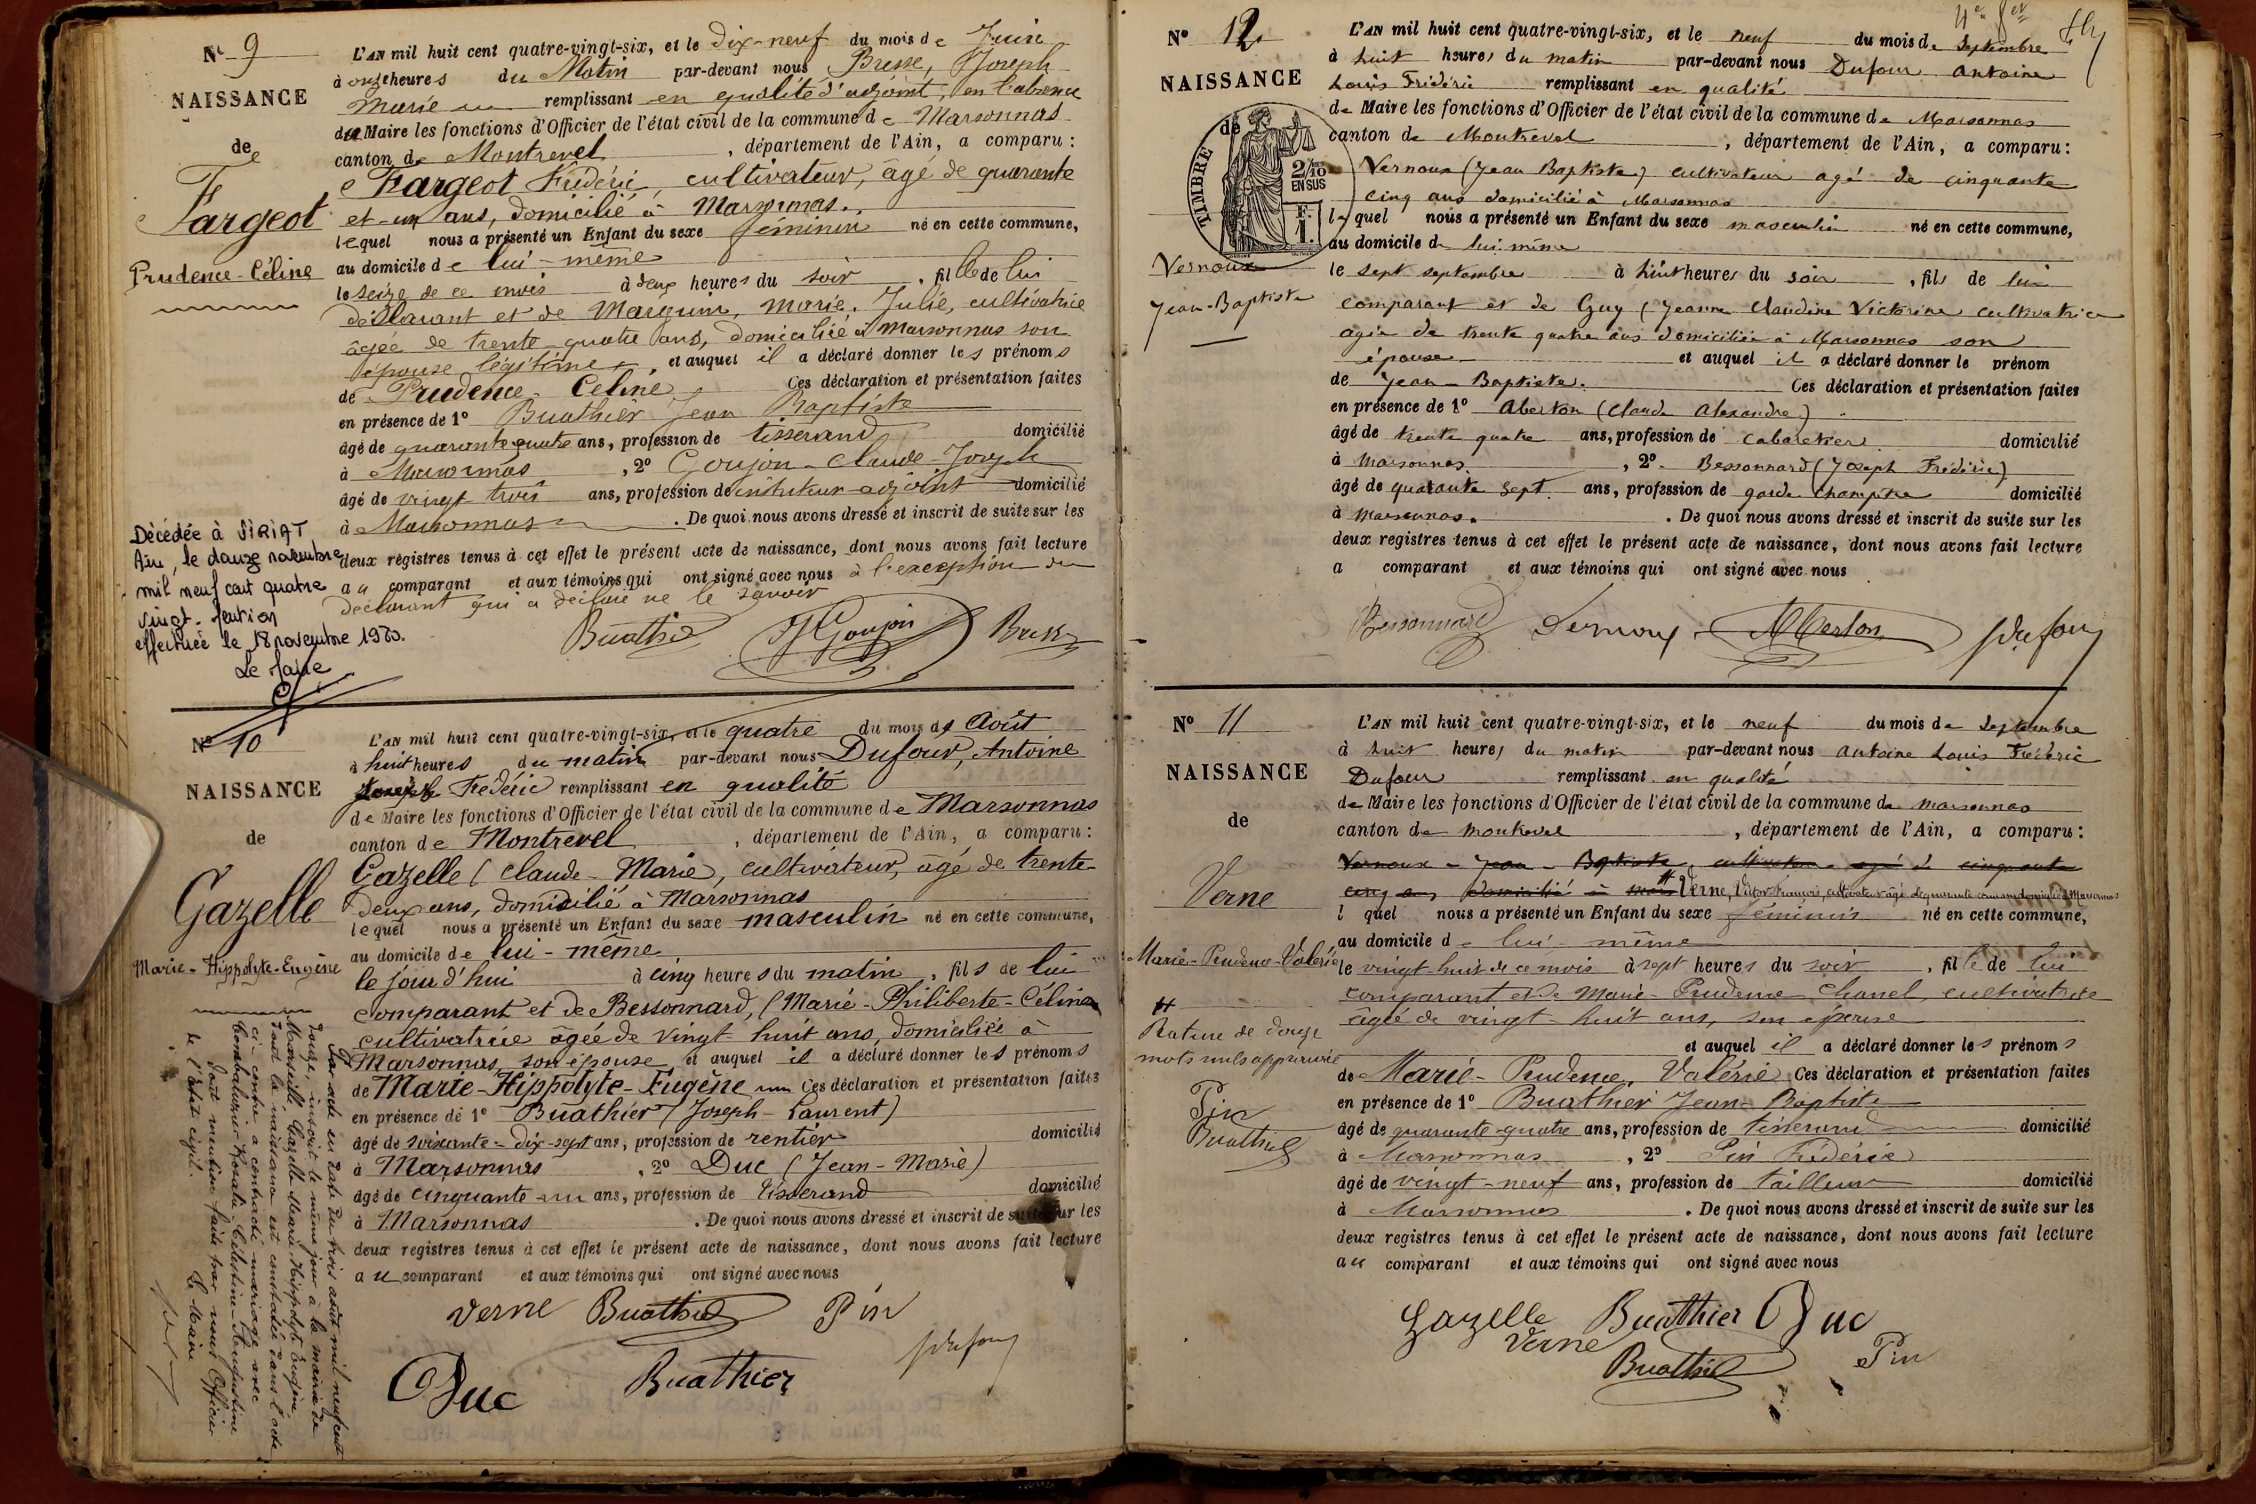 N° 9
NAISSANCE
de
Fargeot
Prudence-Céline
L'AN mil huit cent quatre-vingt-six, et le dix-neuf du mois de Juin
à onze heures du Matin par-devant nous Bresse, Joseph
Marie remplissant en qualité d'adjoint, en l'absence
du Maire les fonctions d'Officier de l'état civil de la commune de Marsonnas
canton de Montrevel, département de l'Ain, a comparu :
Fargeot Frédéric, cultivateur, âgé de quarante
et un ans, domicilié à Marsonnas.
lequel nous a présenté un Enfant du sexe féminin né en cette commune,
au domicile de lui-même
le seize de ce mois à deux heures du soir, fille de lui
déclarant et de Marguin, Marie, Julie, cultivatrice
âgée de trente-quatre ans, domiciliée à Marsonnas son
épouse légitime, et auquel il a déclaré donner les prénoms
de Prudence-Céline. Ces déclaration et présentation faites
en présence de 1° Buathier Jean Baptiste
âgé de quarante quatre ans, profession de tisserand domicilié
à Marsonnas, 2° Goujon-Claude-Joseph
âgé de vingt trois ans, profession de instituteur-adjoint domicilié
à Marsonnas. De quoi nous avons dressé et inscrit de suite sur les
deux registres tenus à cet effet le présent acte de naissance, dont nous avons fait lecture
au comparant et aux témoins qui ont signé avec nous à l'exception du
déclarant qui a déclaré ne le savoir
Buathier Goujon Bresse
Décédée à VIRIAT
Ain, le douze novembre
mil neuf cent quatre
vingt. Mention
effectuée le 18 novembre 1980.
Le Maire
N° 10
NAISSANCE
de
Gazelle
Marie-Hippolyte-Eugène
L'AN mil huit cent quatre-vingt-six, et le quatre du mois d'Août
à huit heures du matin par-devant nous Dufour, Antoine
Joseph Frédéric remplissant en qualité
de Maire les fonctions d'Officier de l'état civil de la commune de Marsonnas
canton de Montrevel, département de l'Ain, a comparu :
Gazelle (Claude-Marie), cultivateur, âgé de trente
deux ans, domicilié à Marsonnas
lequel nous a présenté un Enfant du sexe masculin né en cette commune,
au domicile de lui-même
le jour d'hui à cinq heures du matin, fils de lui
comparant et de Bessonnard, (Marie-Philiberte-Céline
cultivatrice âgée de vingt-huit ans, domiciliée à
Marsonnas, son épouse, et auquel il a déclaré donner les prénoms
de Marie-Hippolyte-Eugène Ces déclaration et présentation faites
en présence de 1° Buathier (Joseph-Laurent)
âgé de soixante-dix-sept ans, profession de rentier domicilié
à Marsonnas, 2° Duc (Jean-Marie)
âgé de cinquante-un ans, profession de tisserand domicilié
à Marsonnas. De quoi nous avons dressé et inscrit de suite sur les
deux registres tenus à cet effet le présent acte de naissance, dont nous avons fait lecture
au comparant et aux témoins qui ont signé avec nous
Verne Buathier Pin
Dufour
Duc Buathier
Par acte en date du trois août mil neuf cent
douze, inscrit le même jour à la mairie de
Marseille, Gazelle Marie Hippolyte Eugène
dont la naissance est constatée dans l'acte
ci-contre a contracté mariage avec
Rosalie Célestine Augustine
Dont mention faite par nous Officier
de l'état civil.
Le Maire
N° 12
NAISSANCE
de
TIMBRE
2/10 EN SUS
F. 1.
Vernoux
Jean-Baptiste
L'AN mil huit cent quatre-vingt-six, et le neuf du mois de Septembre
à huit heures du matin par-devant nous Dufour Antoine
Louis Frédéric remplissant en qualité
de Maire les fonctions d'Officier de l'état civil de la commune de Marsonnas
canton de Montrevel, département de l'Ain, a comparu :
Vernoux (Jean Baptiste) cultivateur agé de cinquante
cinq ans domicilié à Marsonnas
lequel nous a présenté un Enfant du sexe masculin né en cette commune,
au domicile de lui même
le sept septembre à huit heures du soir, fils de lui
comparant et de Guy (Jeanne Claudine Victorine cultivatrice
agée de trente quatre ans domiciliée à Marsonnas son
épouse et auquel il a déclaré donner le prénom
de Jean-Baptiste. Ces déclaration et présentation faites
en présence de 1° Aberton (Claude Alexandre)
âgé de trente quatre ans, profession de cabaretier domicilié
à Marsonnas, 2° Bessonnard (Joseph Frédéric)
âgé de quarante sept ans, profession de garde champêtre domicilié
à Marsonnas. De quoi nous avons dressé et inscrit de suite sur les
deux registres tenus à cet effet le présent acte de naissance, dont nous avons fait lecture
a comparant et aux témoins qui ont signé avec nous
Bessonnard Vernoux Aberton Dufour
N° 11
NAISSANCE
de
Verne
Marie-Prudence-Valérie
Rature de douze
mots nuls approuvée
Pin
Buathier
L'AN mil huit cent quatre-vingt-six, et le neuf du mois de Septembre
à huit heures du matin par-devant nous Antoine Louis Frédéric
Dufour remplissant en qualité
de Maire les fonctions d'Officier de l'état civil de la commune de Marsonnas
canton de Montrevel, département de l'Ain, a comparu :
Vernoux-Jean-Baptiste, cultivateur agé de cinquante
cinq ans domicilié à Mars Verne, Victor François, cultivateur âgé de quarante domicilié à Marsonnas
l quel nous a présenté un Enfant du sexe féminin né en cette commune,
au domicile de lui-même
le vingt huit de ce mois à sept heures du soir, fille de lui
comparant et de Marie-Prudence Chanel, cultivatrice
âgée de vingt-huit ans, son épouse
et auquel il a déclaré donner les prénoms
de Marie-Prudence, Valérie Ces déclaration et présentation faites
en présence de 1° Buathier Jean-Baptiste
âgé de quarante-quatre ans, profession de tisserand domicilié
à Marsonnas, 2° Pin Frédéric
âgé de vingt-neuf ans, profession de tailleur domicilié
à Marsonnas. De quoi nous avons dressé et inscrit de suite sur les
deux registres tenus à cet effet le présent acte de naissance, dont nous avons fait lecture
au comparant et aux témoins qui ont signé avec nous
Gazelle Buathier Duc
Verne Buathier Pin